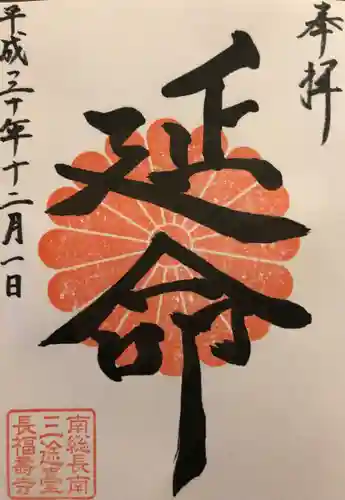 奉拝
延命
平成三十年十二月一日
南総長南
三途台
長福壽寺